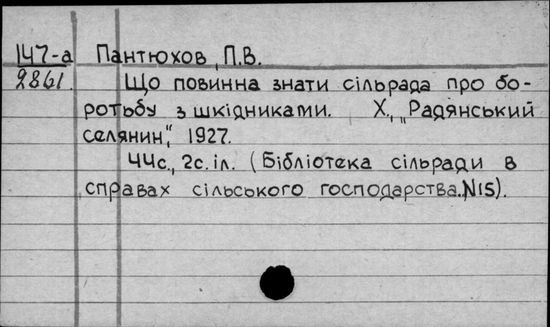 147-а Пантюхов, П.В.
2861. Що повинна знати сільрада про бо-
ротьбу з шкідниками. Х., „Радянський
селянин", 1927.
44с., 2с. іл. (Бібліотека сільради в
справах сільського господарства. №15).